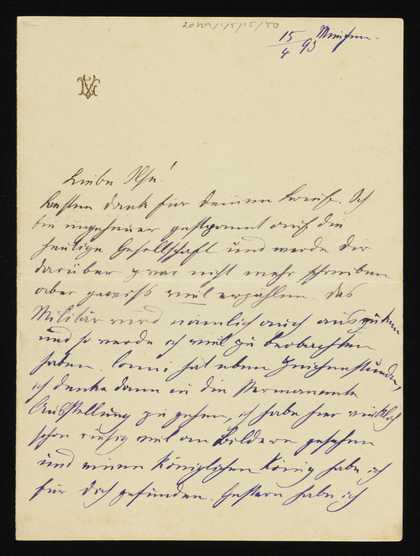 15/4 93 München.
Liebe Ilse!
Besten Dank für Deinen Brief. Ich
bin ungeheuer gespannt auf die
heutige Gesellschaft und werde Dir
darüber zwar nicht mehr schreiben
aber gewiss viel erzählen. Das
Militär wird nämlich auch
und so werde ich viel zu beobachten
haben. hat eben Zeichenstunde,
ich denke dann in die Permanente
Ausstellung zu gehen, ich habe hier wirklich
schon viel an Bildern gesehen
und einen Königlichen König habe ich
für Dich gefunden. Gestern habe ich